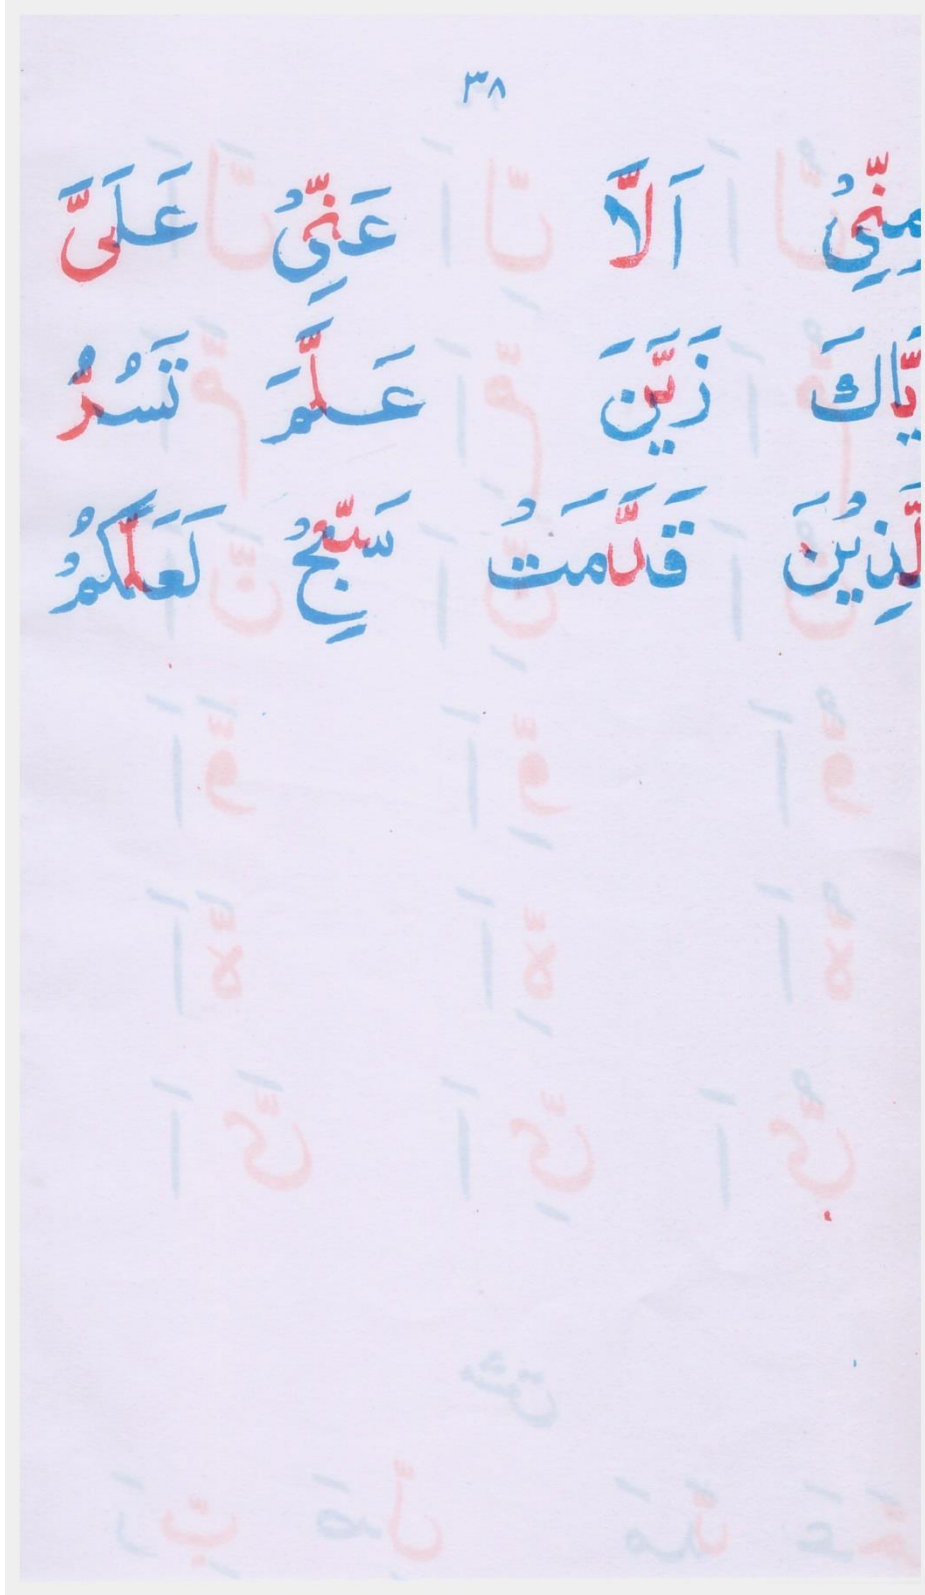 ٣٨
مِنِّىْ اَلَّا عَنِّىْ عَلَىَّ
يَّاكَ زَيَّنَ عَلَّمَ تَسُرُّ
لَّذِيْنَ قَدَّمَتْ سَبِّحْ لَعَلَّكُمْ